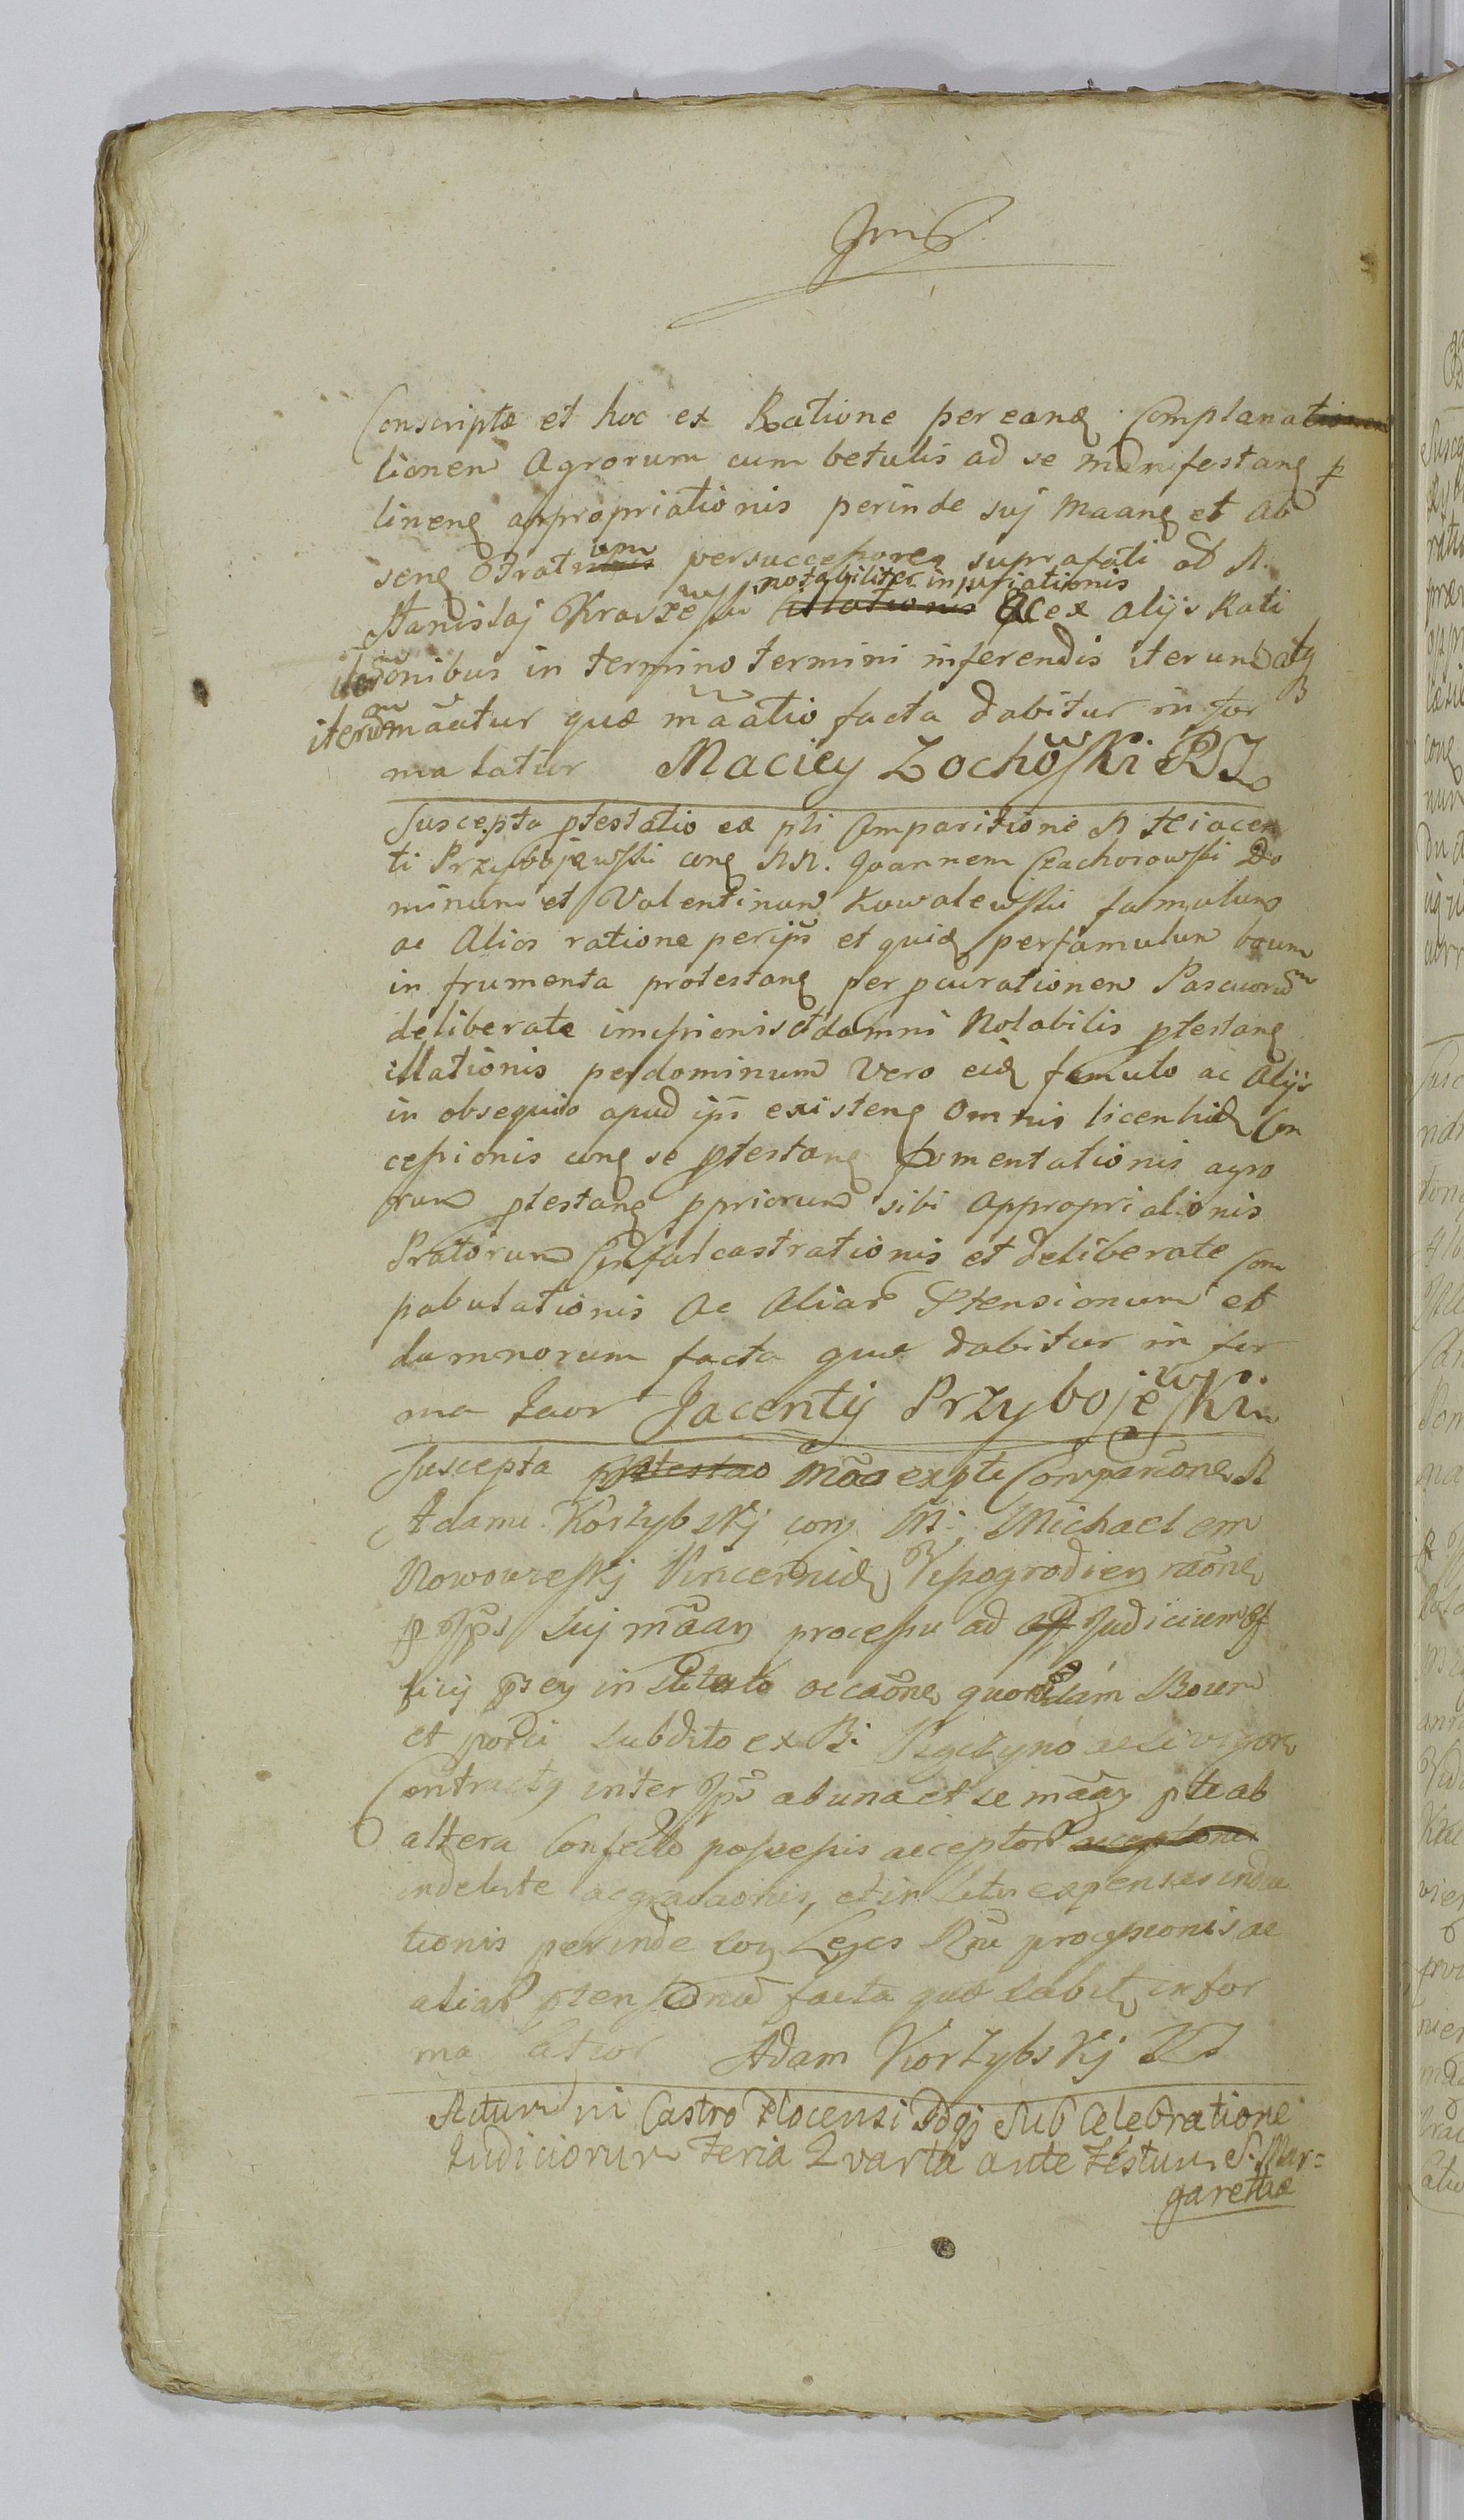 Conscriptæ et hoc ex Ratione per eand Complana
tionem Agrorum cum betulis ad se manifestang p
tineng appropriationis perinde sui Maang et ab
seng Fratrum per successores suprafati olt N.
Stanislaj Kraszewski notabiliter injuriationis ac ex alijs Rati
onibus in termino termini inferendis iterum atq
iterum mãatur quæ mãatio facta dabitur in for
ma latiur Maciey Zochowski RJ
Suscepta ptestatio ex pti Comparitione N Hiacen
ti Przybojewski cong NN. Joannem Czachorowski Do
minum et Valentinum Kowalewski famulum
ac Alios ratione per ips et quid per famulum boum
in frumenta protestang per pcurationem Pascuorum
deliberate impsionis et damni Notabilis ptestang
illationis per dominum Vero eid famulo ac Alijs
in obsequio apud ips existeng Omnis licentiæ Con
cessionis cong se ptestang fomentationis agro
rum ptestang ppriorum sibi appropriationis
Pratorum Confalcastrationis et deliberate com
pabulationis ac Aliar Ptensionum et
damnorum facta quæ dabitur in for
ma Laor Jacenty Przybojewski
Suscepta mão ex pte Comparione N
Adami Korzybskj cong M: Michaelem
Nowowieskj Pincernid Vissogrodien raone
p Ips sui mãang processu ad Judicium of
ficij psen instituto occaone quorundam Boum
et porci subdito ex B: vigore
Contractq inter Ips ab una et se mãang pte ab
altera Confecto possessis acceptor
indebite aggravaonis, et in Litis expensas induc
tionis perinde cong Leges Rni progressionis ac
aliar ptensionu facta quæ dabit in for
ma latior Adam Korzybskj
Actum in Castro Plocensi Pogj Sub Celebratione
Judiciorum Feria Qvarta ante Festum S. Mar=
garethæ